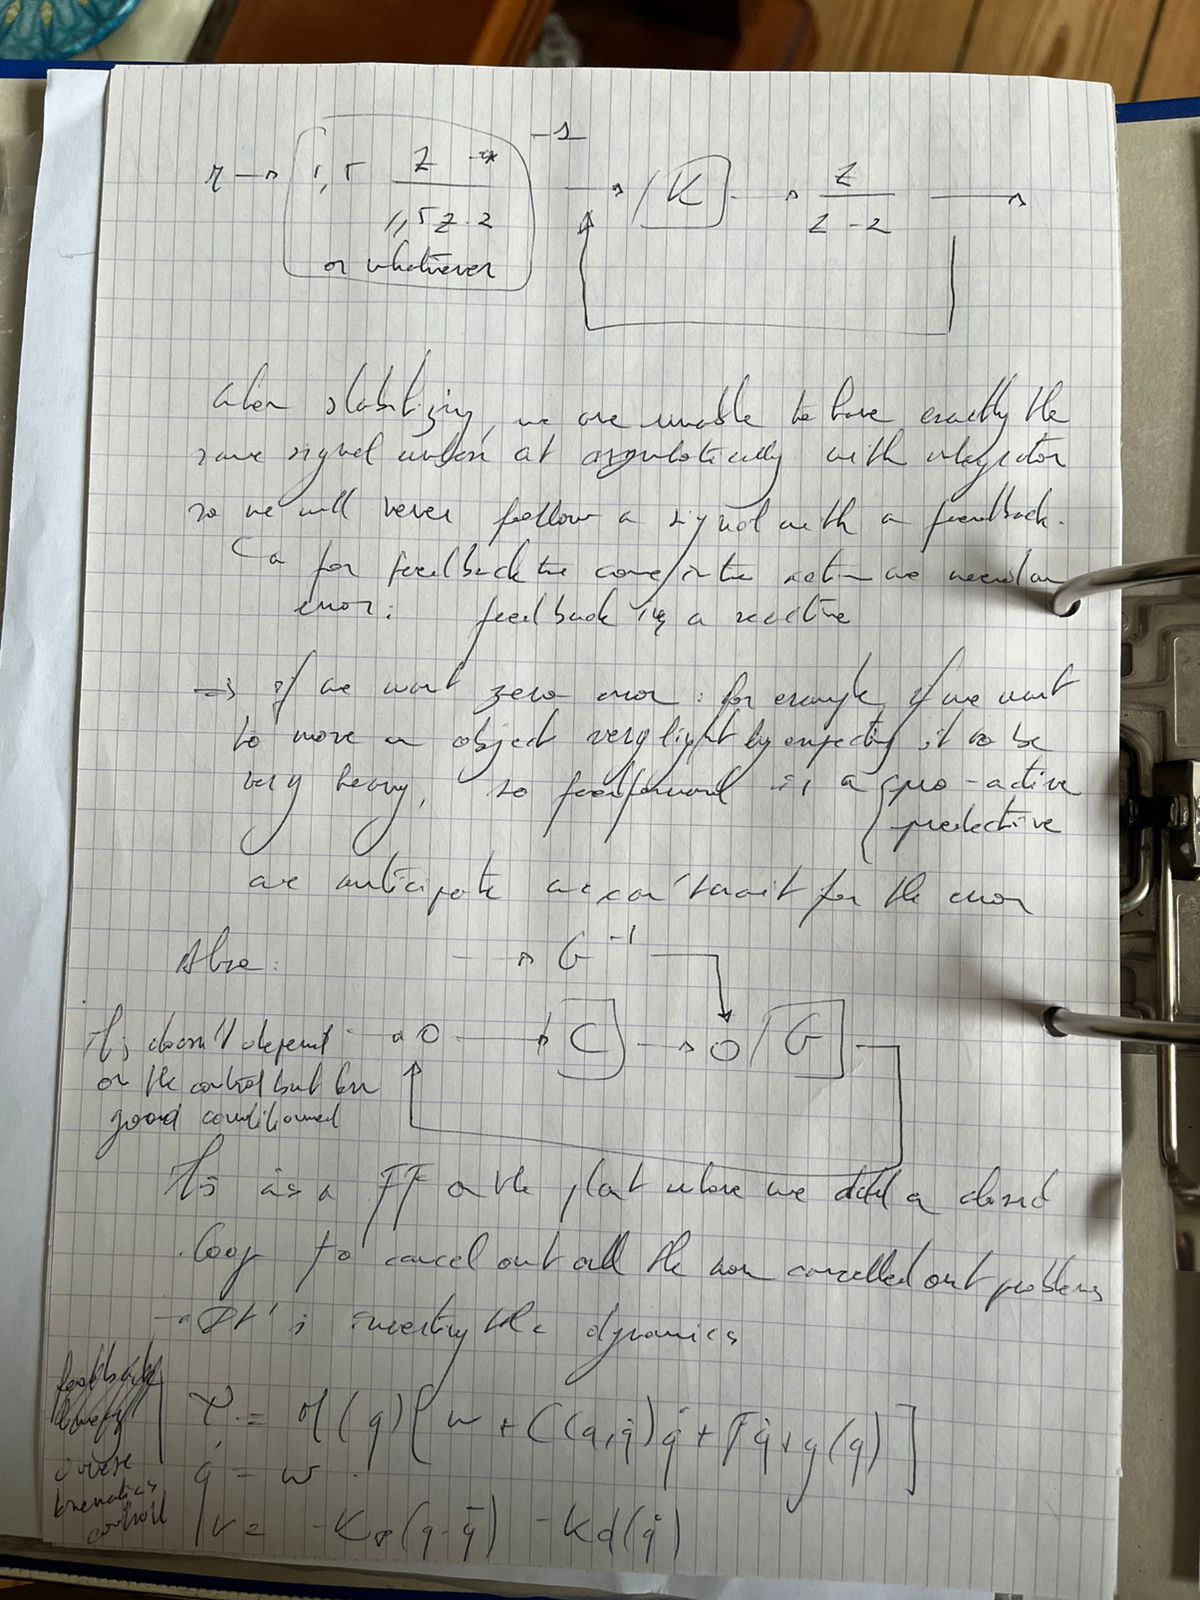 r → 1,5 z / 1,5z-2 -1 → K → z / z-2 →
or whatever
when stabilizing, we are unable to have exactly the
same signal unless at asymptotically with integrator
so we will never follow a signal with a feedback.
for feedback to come in the action we need an
error: feedback is a reactive
⇒ if we want zero error: for example if we want
to move an object very light by expecting it to be
very heavy, so feedforward is a { pro-active
predictive
we anticipate we can't wait for the error
Also: → G -1
→ O → C → O G
This doesn't depend
on the control but
good conditioned
This is a FF on the plant where we add a closed
loop to cancel out all the non cancelled out problems
→ It's inverting the dynamics
τ = M(q)[w + C(q,q̇)q̇ + Fq̇ + g(q)]
inverse
kinematics
control
q̈ = w
v = -Kp(q-q̄) -Kd(q̇)